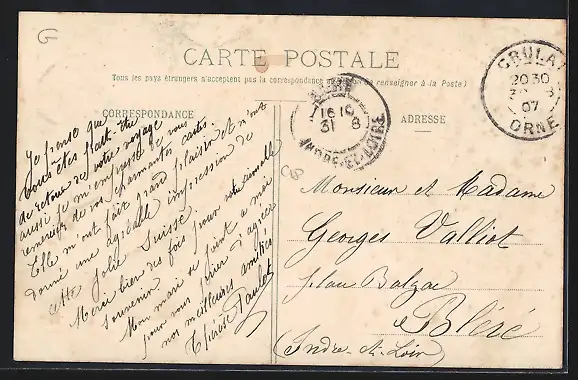 G
CARTE POSTALE
Tous les pays étrangers n'acceptent pas la correspondance au recto (se renseigner à la Poste)
CORRESPONDANCE
ADRESSE
Je pense que
vous êtes
de retour de votre voyage
aussi je m'empresse de vous
remercier de vos charmantes cartes.
Elle m'ont fait grand plaisir et m'ont
donné une agréable impression de
cette jolie Suisse.
Merci bien des fois pour votre aimable
souvenir.
Mon mari se joint a moi
pour vous prier d'agréer
nos meilleures amitiés
Thérèse Paulet
BLÉRÉ
16 10
31 8
INDRE-ET-LOIRE
GRULAY
20 30
8
07
ORNE
Monsieur et Madame
Georges Valliot
place Balzac
Bléré
(Indre-et-Loir)